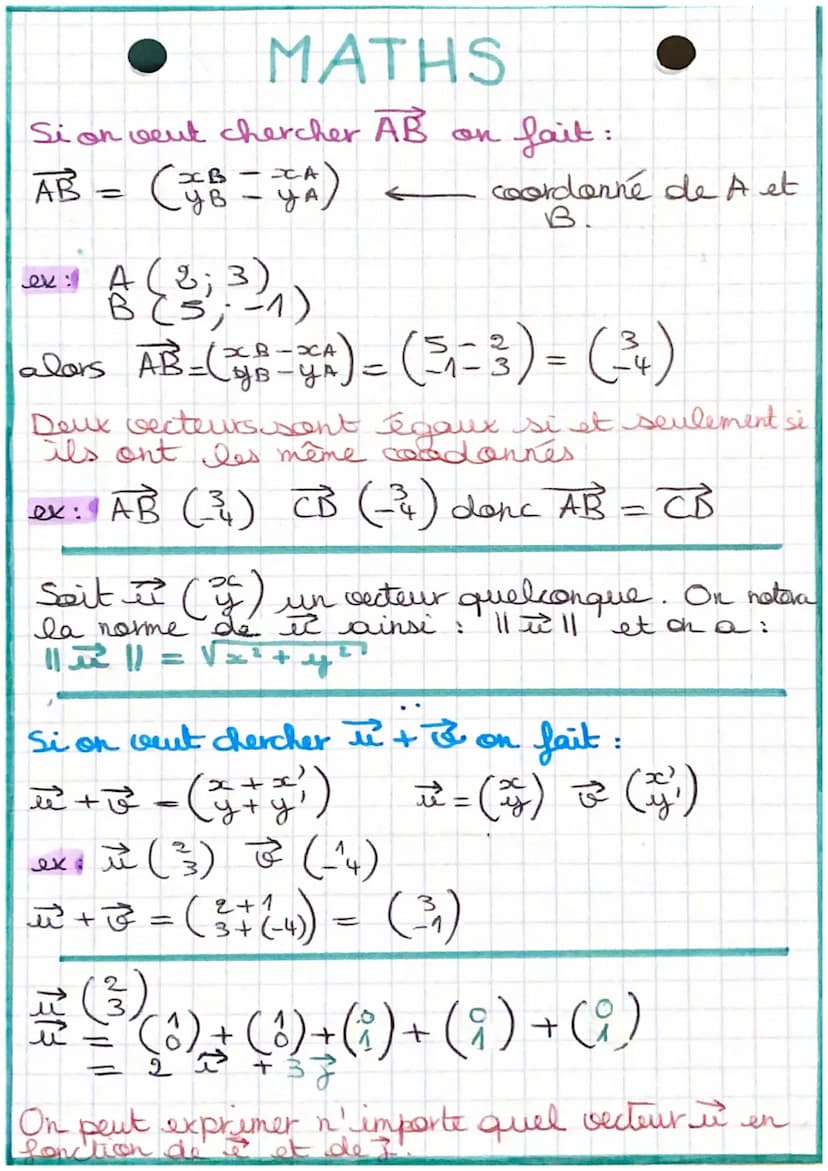 MATHS
Si on veut chercher $\overrightarrow{AB}$ on fait :
$\overrightarrow{AB} = \begin{pmatrix} xB - xA \\ yB - yA \end{pmatrix}$ ← coordonné de A et
B.
ex : A ( 2 ; 3 )
B ( 5 ; -1 )
alors $\overrightarrow{AB} = \begin{pmatrix} xB - xA \\ yB - yA \end{pmatrix} = \begin{pmatrix} 5 - 2 \\ -1 - 3 \end{pmatrix} = \begin{pmatrix} 3 \\ -4 \end{pmatrix}$
Deux vecteurs sont égaux si et seulement si
ils ont les même coodonnés
ex : $\overrightarrow{AB} \begin{pmatrix} 3 \\ -4 \end{pmatrix}$ $\overrightarrow{CD} \begin{pmatrix} 3 \\ -4 \end{pmatrix}$ donc $\overrightarrow{AB} = \overrightarrow{CD}$
Soit $\vec{u} \begin{pmatrix} x \\ y \end{pmatrix}$ un vecteur quelconque. On notera
la norme de $\vec{u}$ ainsi : $|| \vec{u} ||$ et on a :
$|| \vec{u} || = \sqrt{x^2 + y^2}$
Si on veut chercher $\vec{u} + \vec{v}$ on fait :
$\vec{u} + \vec{v} = \begin{pmatrix} x + x' \\ y + y' \end{pmatrix}$ $\vec{u} = \begin{pmatrix} x \\ y \end{pmatrix}$ $\vec{v} \begin{pmatrix} x' \\ y' \end{pmatrix}$
ex : $\vec{u} \begin{pmatrix} 2 \\ 3 \end{pmatrix}$ $\vec{v} \begin{pmatrix} 1 \\ -4 \end{pmatrix}$
$\vec{u} + \vec{v} = \begin{pmatrix} 2 + 1 \\ 3 + (-4) \end{pmatrix} = \begin{pmatrix} 3 \\ -1 \end{pmatrix}$
$\vec{u} \begin{pmatrix} 2 \\ 3 \end{pmatrix}$
$\vec{u} = \begin{pmatrix} 1 \\ 0 \end{pmatrix} + \begin{pmatrix} 1 \\ 0 \end{pmatrix} + \begin{pmatrix} 0 \\ 1 \end{pmatrix} + \begin{pmatrix} 0 \\ 1 \end{pmatrix} + \begin{pmatrix} 0 \\ 1 \end{pmatrix}$
$= 2 \vec{i} + 3 \vec{j}$
On peut exprimer n'importe quel vecteur $\vec{u}$ en
fonction de $\vec{i}$ et de $\vec{j}$.